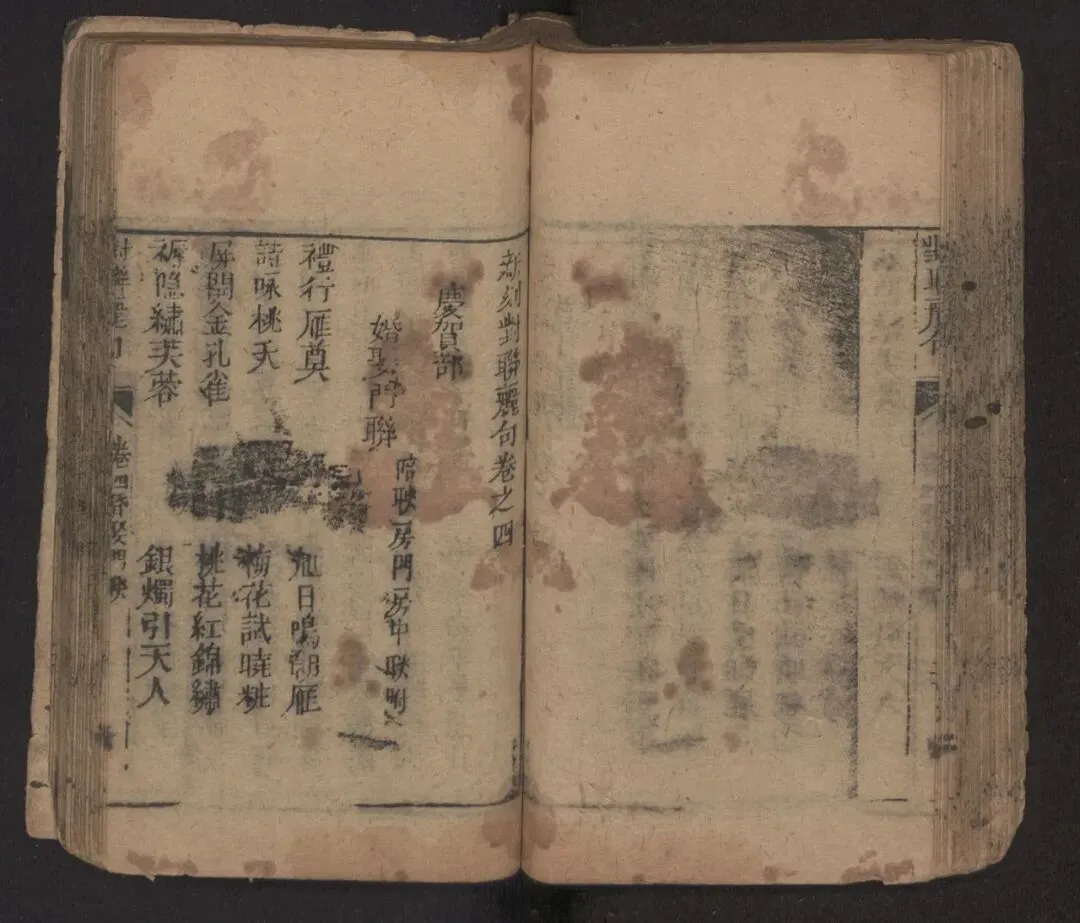 對聯
新刻對聯麗句卷之四
慶賀部
婚娶門聯
啽聯房門房中联附
禮行雁奠
旭日鳴朝雁
詩咏桃夭
梅花試曉粧
屏開金孔雀
桃花紅錦繡
褥隱繡芙蓉
銀燭引天人
對聯麗句
卷四婚娶門联